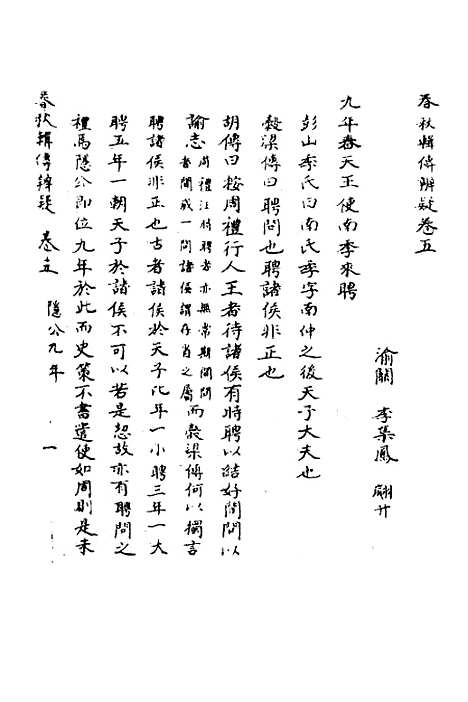 春秋輯傳辨疑卷五
渝關　李集鳳　翩升
九年春天王使南季來聘
彭山季氏曰南氏季字南仲之後天子大夫也
穀梁傳曰聘問也聘諸侯非正也
胡傳曰按周禮行人王者待諸侯有時聘以結好閒問以
諭志周禮注時聘者亦無常期閒問者閒歲一問諸侯謂存省之屬而穀梁傳何以獨言
聘諸侯非正也古者諸侯於天子比年一小聘三年一大
聘五年一朝天子於諸侯不可以若是恝故亦有聘問之
禮焉隱公即位九年於此而史策不書遣使如周則是未
春秋輯傳辨疑　卷五　隱公九年　一